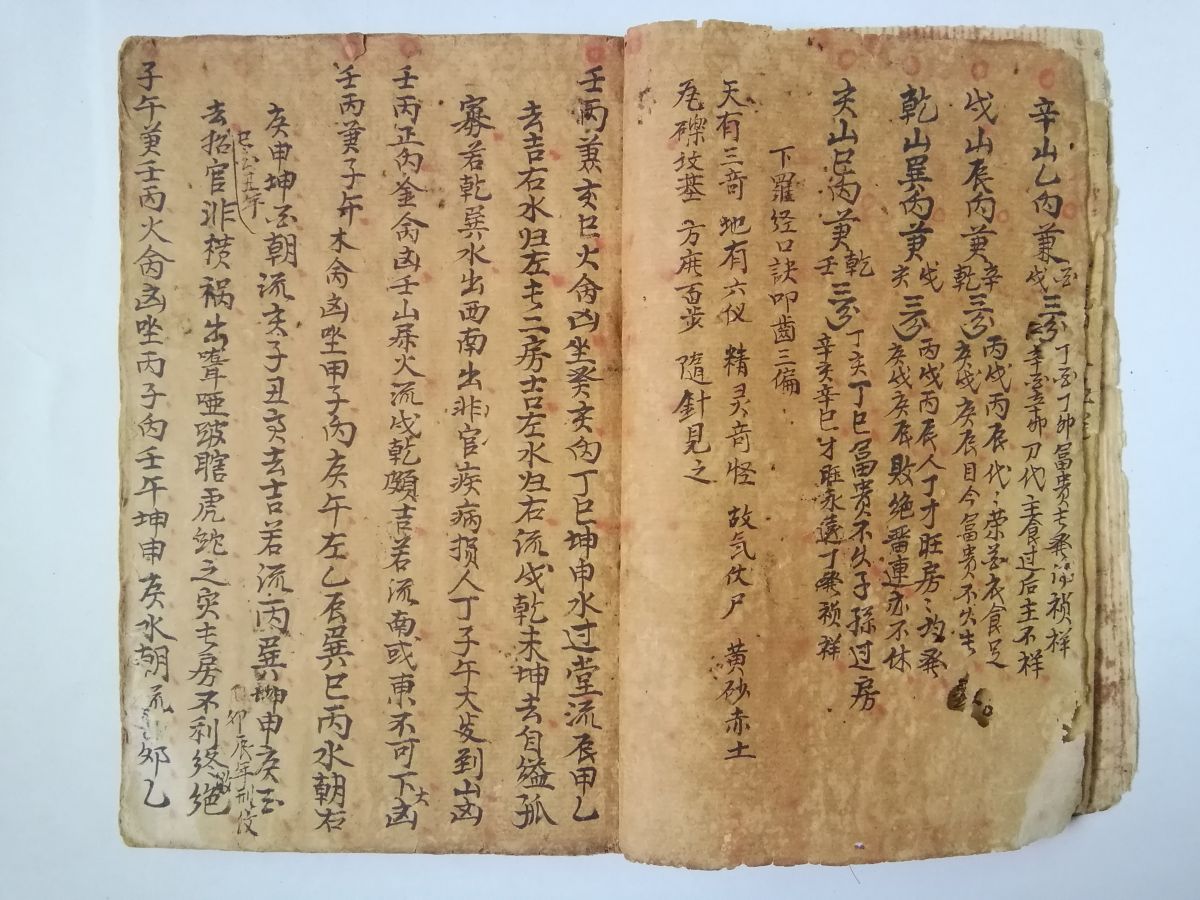 辛山乙向兼酉戌三分 丁酉丁卯富贵长発 祯祥 辛酉辛卯刀代主食过后主不祥
戌山辰向兼辛乾三分 丙戌丙辰代々荣 衣食足 庚戌庚辰目今富贵不久长
乾山巽向兼戌亥三分 丙戌丙辰人丁才旺房々均発 庚戌庚辰败绝 連亦不休
亥山巳向兼乾壬三分 丁亥丁巳富贵不久子孫过房 辛亥辛巳才旺永遠丁発祯祥
下羅经口訣叩齒三偏
天有三奇 地有六仪 精灵奇怪 故气伏尸 黄砂赤土
瓦礫坟基 方広百步 隨針見之
壬丙兼亥巳火向凶坐癸亥向丁巳坤申水过堂流辰甲乙
去吉右水归左长二房吉左水归右流戌乾未坤去自缢孤
寡若乾巽水出西南出非官疾病损人丁子午大发到山凶
壬丙正向金向凶壬山属火流戌乾頗吉若流南或東不可下大凶
壬丙兼子午木向凶坐甲子向庚午左乙辰巽巳丙水朝右
庚申坤酉朝流亥子丑 去吉若流丙巽坤申庚酉
巳酉丑年
去招官非横祸出聋哑跛瞎虎蛇之灾长房不利终绝
卯辰年刑
子午兼壬丙火向凶坐丙子向壬午坤申庚水朝流 卯乙